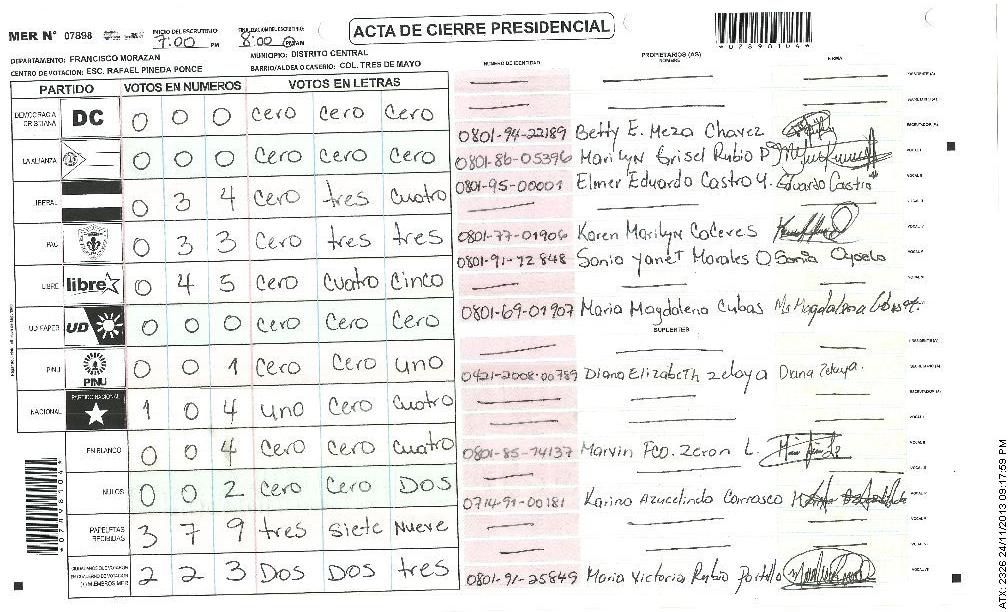 MER N° 07898
INICIO DEL ESCRUTINIO 7:00 PM
8:00 PM
ACTA DE CIERRE PRESIDENCIAL
*07898104*
DEPARTAMENTO: FRANCISCO MORAZAN
MUNICIPIO: DISTRITO CENTRAL
CENTRO DE VOTACION: ESC. RAFAEL PINEDA PONCE
BARRIO/ALDEA O CASERIO: COL. TRES DE MAYO
PARTIDO VOTOS EN NUMEROS VOTOS EN LETRAS
DEMOCRACIA CRISTIANA DC 0 0 0 cero cero cero
LA ALIANZA 0 0 0 cero cero cero
LIBERAL 0 3 4 cero tres cuatro
PAC 0 3 3 cero tres tres
LIBRE libre 0 4 5 cero cuatro cinco
UD FAPER UD 0 0 0 cero cero cero
PINU PINU 0 0 1 cero cero uno
NACIONAL PARTIDO NACIONAL 1 0 4 uno cero cuatro
EN BLANCO 0 0 4 cero cero cuatro
NULOS 0 0 2 cero cero DOS
PAPELETAS RECIBIDAS 3 7 9 tres siete nueve
2 2 3 DOS DOS tres
NUMERO DE IDENTIDAD PROPIETARIOS (AS) NOMBRE FIRMA
0801-94-22189 Betty E. Meza Chavez
0801-86-05396 Marilyn Grisel Rubio P
0801-95-00001 Elmer Eduardo Castro Y. Eduardo Castro
0801-77-01906 Karen Marilyn Caceres
0801-91-12848 Sonia Yanet Morales O Sonia
0801-69-01907 Maria Magdalena Cubas
SUPLENTES
0421-2008-00789 Diana Elizabeth zelaya Diana Zelaya.
0801-85-14137 Marvin Fco. Zeron L.
0714-91-00181 Karina Azucelinda Carrasco
0801-91-25849 Maria Victoria Rubio Portillo
*07898104*
ATX 2326 24/11/2013 09:17:59 PM